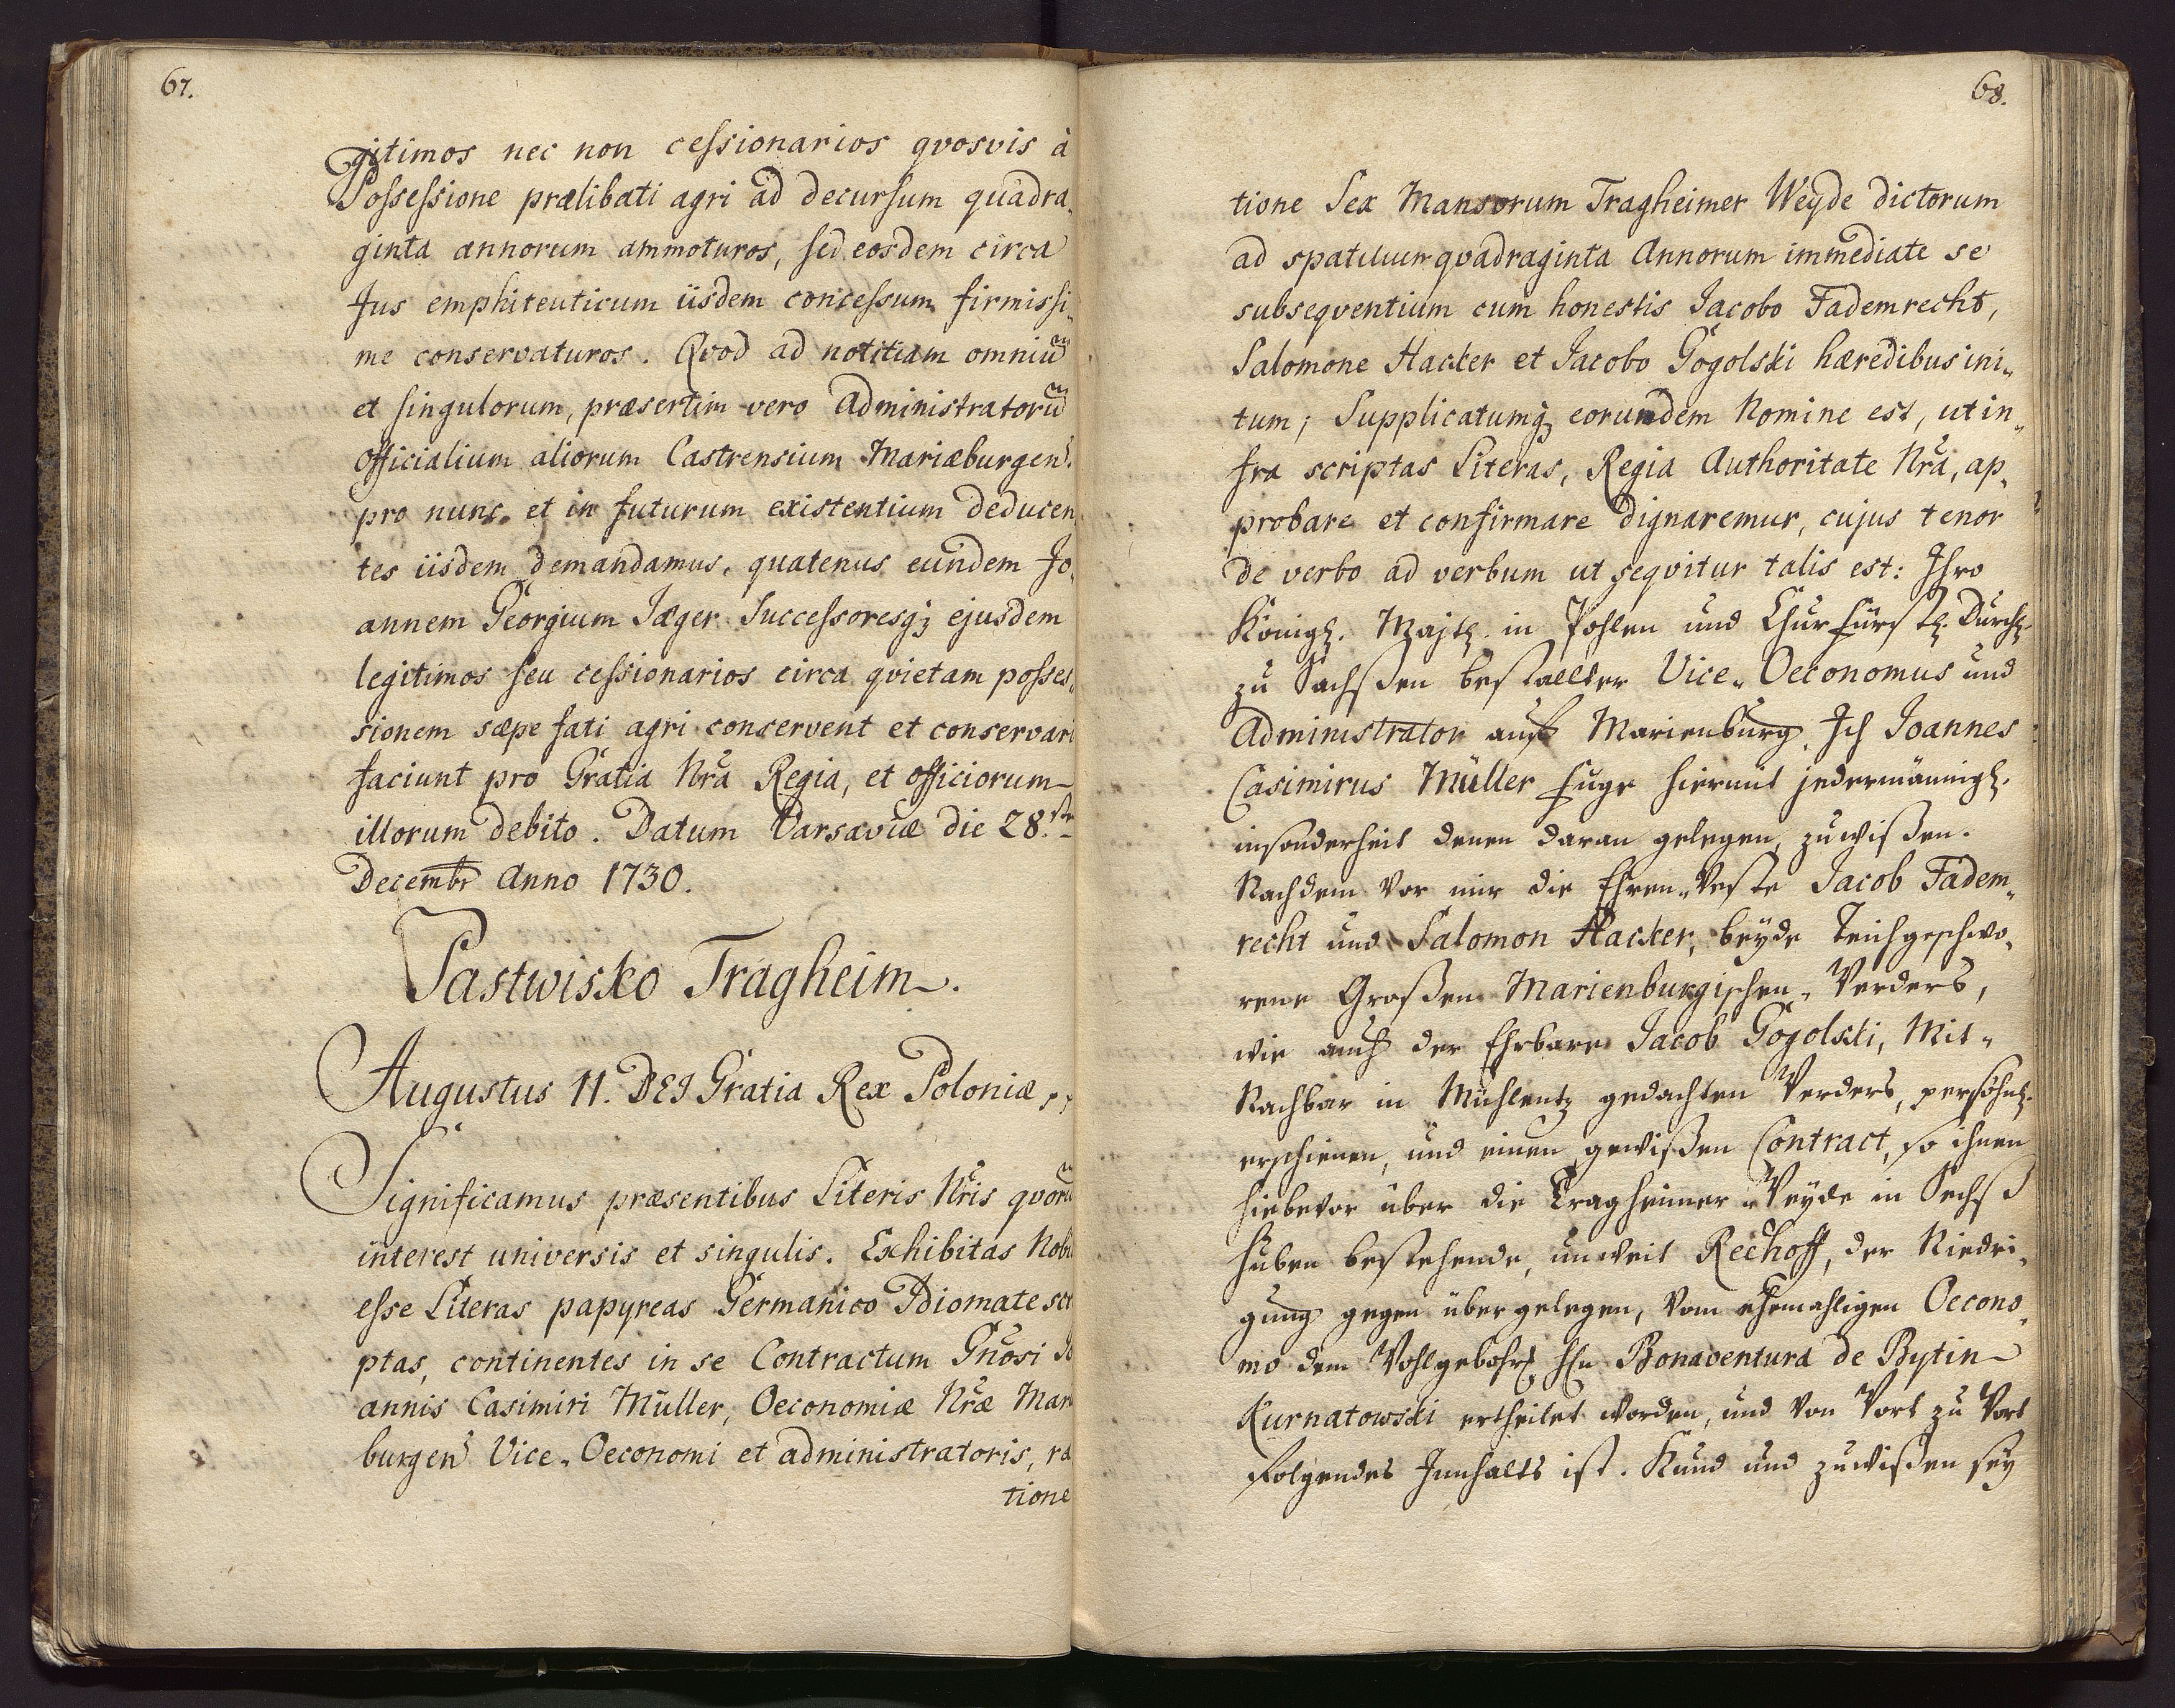 67.
gitimos nec non cessionarios qvosvis à
Possessione prælibati agri ad decursum quadra„
ginta annorum ammoturos, sed eosdem circa
Jus emphiteuticum iisdem concessum firmissi„
me conservaturos. Qvod ad notitiam omniũ
et singulorum, præsertim vero Administratorũ
Officialium aliorum Castrensium Mariæburgens.
pro nunc et in futurum existentium deducen
tes iisdem demandamus, quatenus eundem Jo„
annem Georgium Jæger Successoresqз ejusdem
legitimos seu cessionarios circa qvietam posses„
sionem sæpe fati agri conservent et conservari
faciunt pro Gratia Nrã Regia, et officiorum
illorum debito. Datum Varsaviæ die 28.
Decembr Anno 1730.
Pastwisko Tragheim.
Augustus II. DEI Gratia Rex Poloniæ
Significamus præsentibus Literis Nrĩs qvorũ
interest universis et singulis. Exhibitas Nobi
esse Literas papyreas Germanico Idiomate scri
ptas, continentes in se Contractum Gnõsi Jo
annis Casimiri Müller, Oeconomiæ Nræ Mari
burgens Vice„Oeconomi et administratoris, ra
tione
68.
tione Sex Mansorum Tragheimer Weyde dictorum
ad spatium qvadraginta Annorum immediate se
subseqventium cum honestis Jacobo Fademrecht,
Salomone Hacker et Jacobo Gogolski hæredibus ini„
tum; Supplicatumqз eorundem Nomine est, ut in„
fra scriptas Literas, Regia Authoritate Nrã, ap„
probare et confirmare dignaremur, cujus tenor
de verbo ad verbum ut seqvitur talis est: Ihro
Königl. Majtl. in Pohlen und Churfürstl. Durchl.
zu Sachßen bestallter Vice„Oeconomus und
Administrator auff Marienburg. Ich Joannes
Casimirus Müller fuge hiermit jedermännigl.
insonderheit denen daran gelegen, zuwißen.
Nachdem vor mir die Ehren„Veste Jacob Fadem„
recht und Salomon Hacker, beyde Teichgeschwo„
rene Großen Marienburgischen„Werders,
wie auch der Ehrbare Jacob Gogolski, Mit„
Nachbar in Mühlentz gedachten Werders, persöhnl.
erschienen, und einen gewißen Contract, so ihnen
hiebevor über die Tragheimer„Weyde in Sechß
Huben bestehende, unweit Reehoff, der Niedri„
gung gegen über gelegen, vom ehemahligen Oecono„
mo dem Wohlgebohrn Hn Bonaventura de Bytin
Kurnatowski ertheilet worden, und von Wort zu Wort
folgendes Innhalts ist. Kund und zuwißen sey